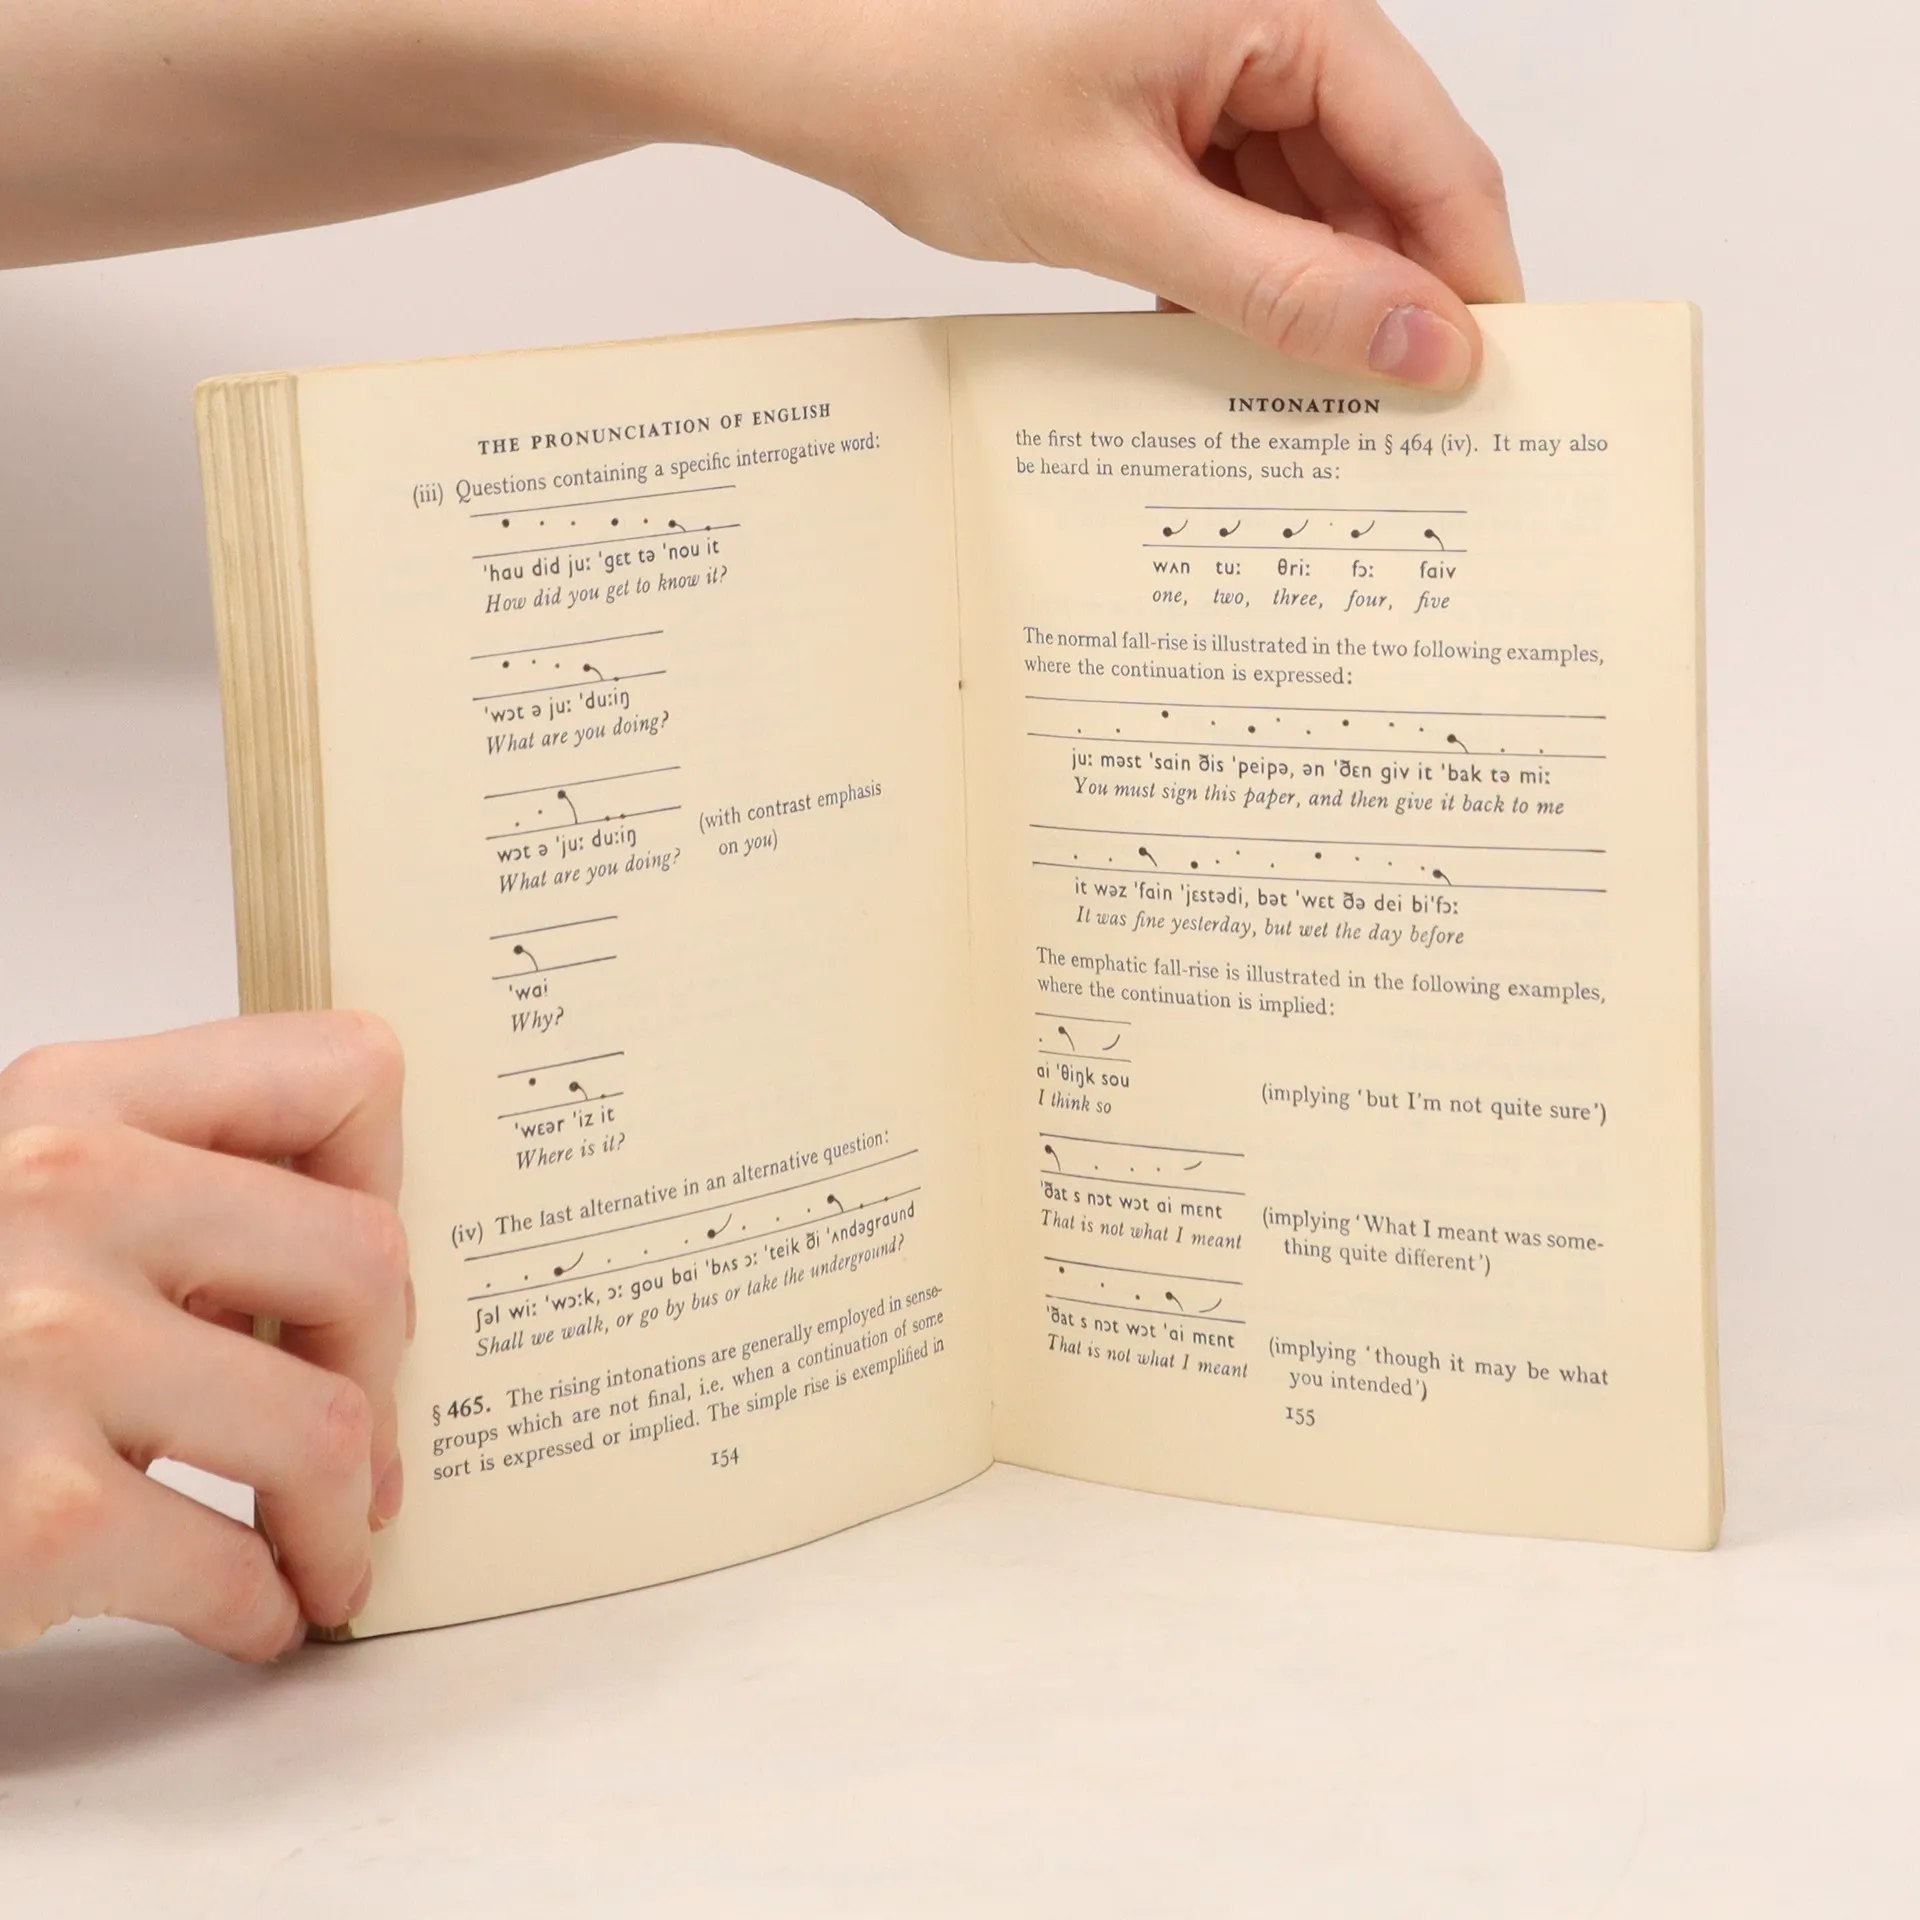 THE PRONUNCIATION OF ENGLISH
(iii) Questions containing a specific interrogative word:
ˈhɑu did juː ˈgɛt tə ˈnou it
How did you get to know it?
ˈwɔt ə juː ˈduːiŋ
What are you doing?
wɔt ə ˈjuː duːiŋ
What are you doing?
(with contrast emphasis
on you)
ˈwɑi
Why?
ˈwɛər ˈiz it
Where is it?
(iv) The last alternative in an alternative question:
ʃəl wiː ˈwɔːk, ɔː gou bɑi ˈbʌs ɔː ˈteik ði ˈʌndəgrɑund
Shall we walk, or go by bus or take the underground?
§ 465. The rising intonations are generally employed in sense-
groups which are not final, i.e. when a continuation of some
sort is expressed or implied. The simple rise is exemplified in
154
INTONATION
the first two clauses of the example in § 464 (iv). It may also
be heard in enumerations, such as:
wʌn tuː θriː fɔː fɑiv
one, two, three, four, five
The normal fall-rise is illustrated in the two following examples,
where the continuation is expressed:
juː məst ˈsɑin ðis ˈpeipə, ən ˈðɛn giv it ˈbak tə miː
You must sign this paper, and then give it back to me
it wəz ˈfɑin ˈjɛstədi, bət ˈwɛt ðə dei biˈfɔː
It was fine yesterday, but wet the day before
The emphatic fall-rise is illustrated in the following examples,
where the continuation is implied:
ɑi ˈθiŋk sou
I think so
(implying ‘but I’m not quite sure’)
ˈðat s nɔt wɔt ɑi mɛnt
That is not what I meant
(implying ‘What I meant was some-
thing quite different’)
ˈðat s nɔt wɔt ˈɑi mɛnt
That is not what I meant
(implying ‘though it may be what
you intended’)
155